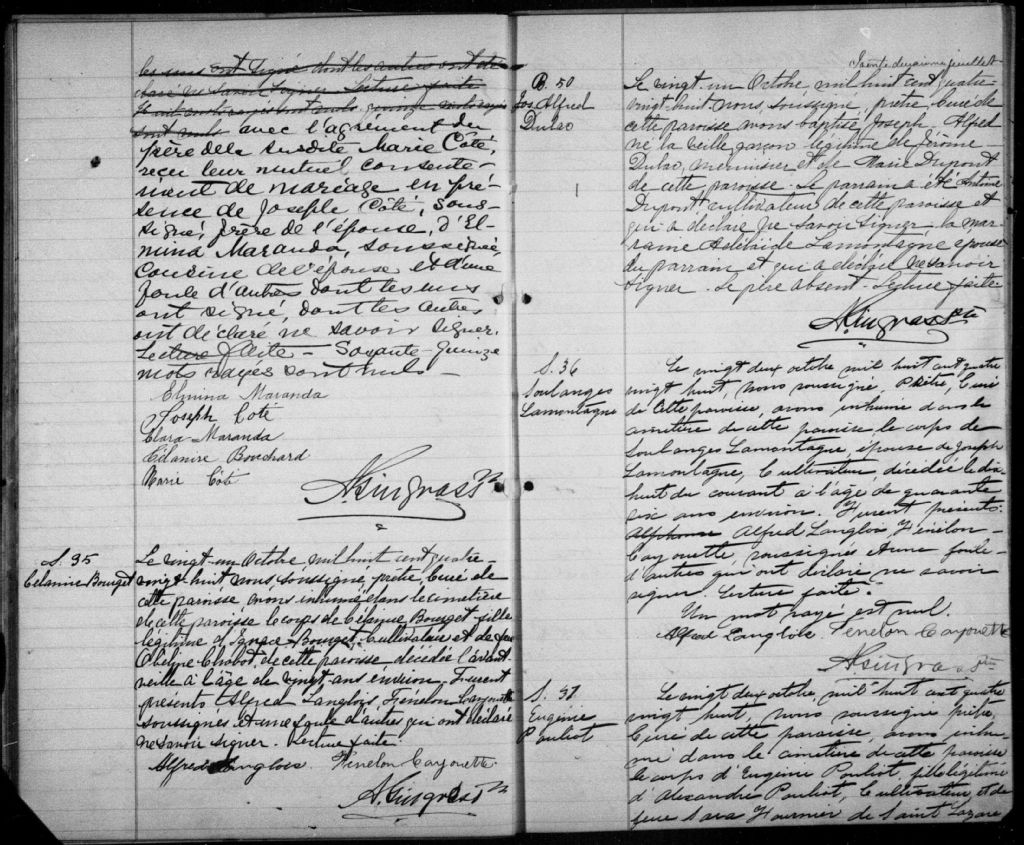 les uns ont signé dont les autres ont dé-
claré ne savoir signer Lecture faite
sont nuls avec l'agrément du
père de la susdite Marie Côté,
reçu leur mutuel consente-
ment de mariage en pré-
sence de Joseph Côté, sous-
signé, frère de l'épouse, d'El-
mina Maranda, soussignée,
Cousine de l'épouse et d'une
foule d'autres dont les uns
ont signé, dont les autres
ont déclaré ne savoir signer.
Lecture faite - Soixante-quinze
mots rayés sont nuls -
Elmina Maranda
Joseph Coté
Clara Maranda
Célanire Bouchard
Marie Côté
N. Gingras Ptre
S. 35
Célanire Bourget
Le vingt-un Octobre, mil huit cent quatre-
vingt huit nous soussigné, prêtre, Curé de
cette paroisse, avons inhumé dans le cimetière
de cette paroisse le corps de Célanire Bourget fille
légitime d'Ignace Bourget, Cultivateur et de feue
Obeline Chabot, de cette paroisse, décédée l'avant
veille à l'âge de vingt ans environ. Furent
présents Alfred Langlois, Fénelon Cayouette
soussignés et une foule d'autres qui ont déclaré
ne savoir signer. Lecture faite.
Alfred Langlois Fénelon Cayouette
N. Gingras Ptre
B. 50
Jos. Alfred
Dulac
Le vingt-un Octobre, mil huit cent quatre
vingt-huit nous, soussigné, prêtre, Curé de
cette paroisse avons baptisé Joseph Alfred
né la veille garçon légitime de Jérôme
Dulac, menuisier et de Marie Dupont
de cette paroisse. Le parrain a été Antoine
Dupont, cultivateur de cette paroisse et
qui a déclaré ne savoir signer la mar-
raine Adélaïde Lamontagne épouse
du parrain et qui a déclaré ne savoir
signer. Le père absent. Lecture faite.
N. Gingras Ptr
S. 36
Soulanges
Lamontagne
Le vingt deux octobre mil huit cent quatre
vingt huit, nous soussigné, Prêtre, Curé
de cette paroisse, avons inhumé dans le
cimetière de cette paroisse le corps de
Soulanges Lamontagne, épouse de Joseph
Lamontagne, Cultivateur, décédée le dix
huit du courant à l'âge de quarante
six ans environ. Furent présents:
Alphonse Alfred Langlois, Fénelon
Cayouette soussignés et une foule
d'autres qui ont déclaré ne savoir
signer. Lecture faite.
Un mot rayé est nul.
Alfred Langlois Fénelon Cayouette
N. Gingras Ptre
S. 37
Eugénie
Pouliot
Le vingt deux octobre, mil huit cent quatre
vingt huit, nous soussigné prêtre,
Curé de cette paroisse, avons inhu-
mé dans le cimetière de cette paroisse
le corps d'Eugénie Pouliot, fille légitime
d'Alexandre Pouliot, Cultivateur, et de
feue Sara Fournier de Saint Lazare